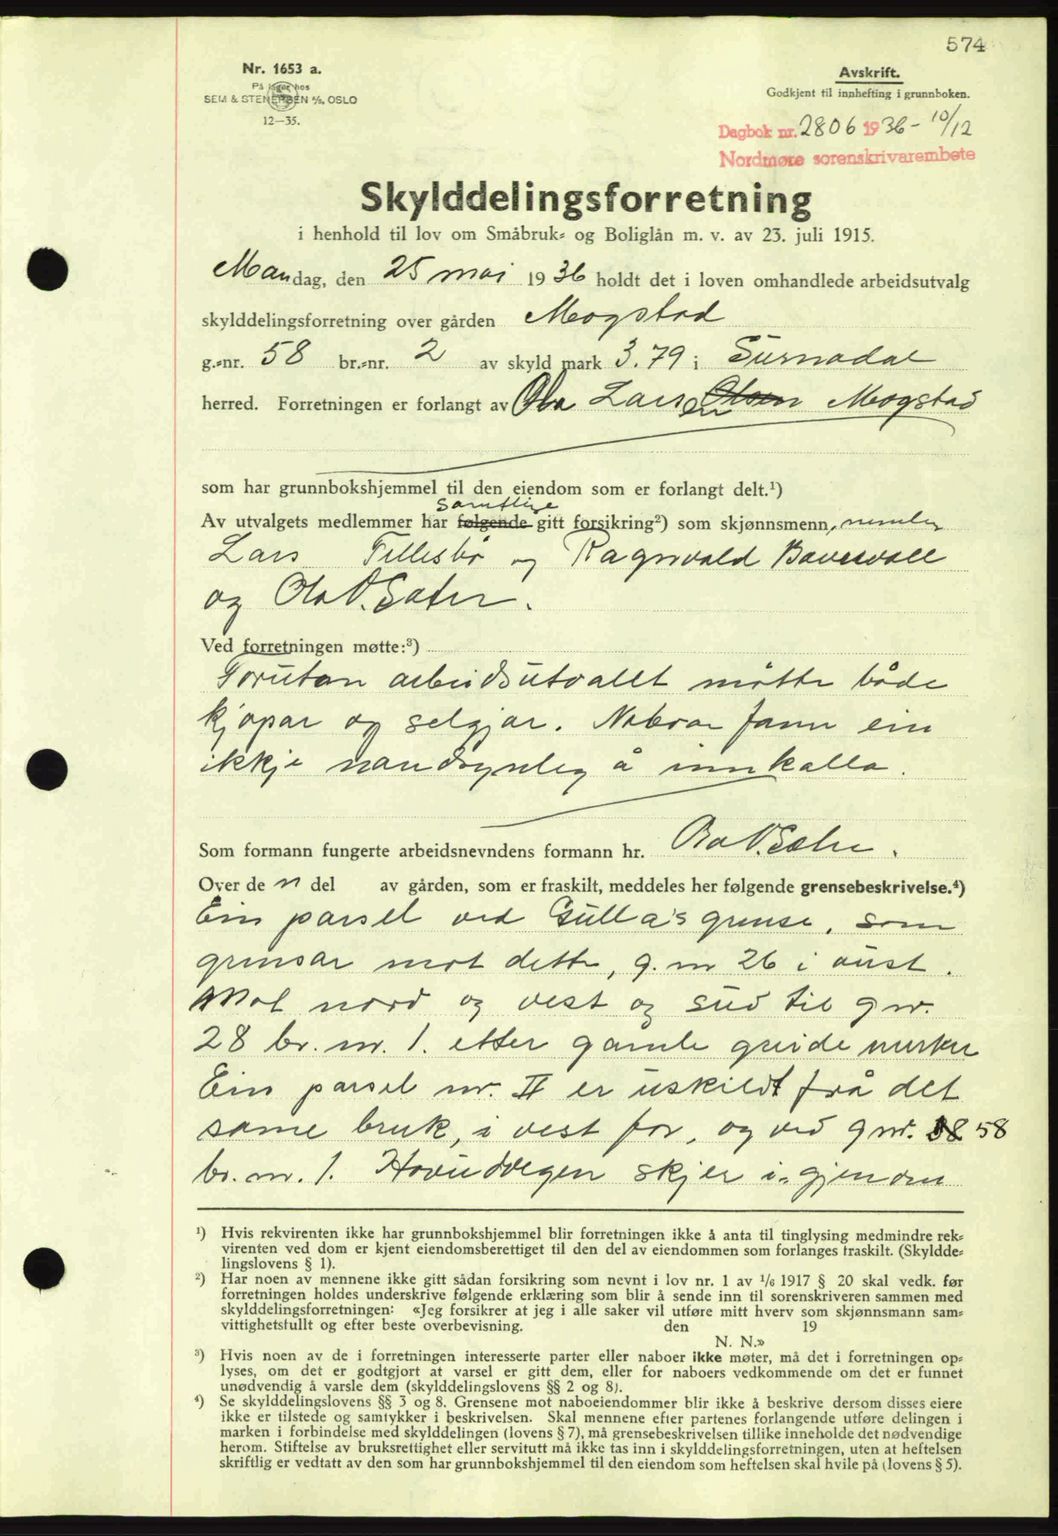 574
Nr. 1653 a.
På lager hos
SEM & STENERSEN A/S, OSLO
12—35.
Avskrift.
Godkjent til innhefting i grunnboken.
Dagbok nr. 2806 1936 - 10/12
Nordmøre sorenskrivarembete
Skylddelingsforretning
i henhold til lov om Småbruk- og Boliglån m. v. av 23. juli 1915.
Mandag, den 25 mai 1936 holdt det i loven omhandlede arbeidsutvalg
skylddelingsforretning over gården Mogstad
g.-nr. 58 br.-nr. 2 av skyld mark 3.79 i Surnadal
herred. Forretningen er forlangt av Ola Larsen Olsen Mogstad
som har grunnbokshjemmel til den eiendom som er forlangt delt.¹)
samtlige
Av utvalgets medlemmer har følgende gitt forsikring²) som skjønnsmenn, nemleg
Lars Tellesbø og Ragnvald Bævervoll
og Ola O. Sæter.
Ved forretningen møtte:³)
Forutan arbeidsutvallet møtte både
kjøpar og seljar. Naboar fann ein
ikkje naudsynleg å innkalla.
Som formann fungerte arbeidsnevndens formann hr. Ola O. Sæter.
Over de n del av gården, som er fraskilt, meddeles her følgende grensebeskrivelse.⁴)
Ein parsel ved Gulla's grense, som
grensar mot dette, g.nr 26 i aust.
Mot nord og vest og sud til gnr.
28 br. nr. 1. etter gamle greide merker
Ein parsel nr. II er uskildt frå det
same bruk, i vest for, og ved gnr. 58
br. nr. 1. Hovudvegen skjer i-gjenom
¹) Hvis rekvirenten ikke har grunnbokshjemmel blir forretningen ikke å anta til tinglysing medmindre rek-
virenten ved dom er kjent eiendomsberettiget til den del av eiendommen som forlanges fraskilt. (Skyldde-
lingslovens § 1).
²) Har noen av mennene ikke gitt sådan forsikring som nevnt i lov nr. 1 av 1/6 1917 § 20 skal vedk. før
forretningen holdes underskrive følgende erklæring som blir å sende inn til sorenskriveren sammen med
skylddelingsforretningen: «Jeg forsikrer at jeg i alle saker vil utføre mitt hverv som skjønnsmann sam-
vittighetsfullt og efter beste overbevisning. den 19
N. N.»
³) Hvis noen av de i forretningen interesserte parter eller naboer ikke møter, må det i forretningen op-
lyses, om det er godtgjort at varsel er gitt dem, eller for naboers vedkommende om det er funnet
unødvendig å varsle dem (skylddelingslovens §§ 2 og 8).
⁴) Se skylddelingslovens §§ 3 og 8. Grensene mot naboeiendommer blir ikke å beskrive dersom disses eiere
ikke er tilstede og samtykker i beskrivelsen. Skal mennene efter partenes forlangende utføre delingen i
marken i forbindelse med skylddelingen (lovens § 7), må grensebeskrivelsen tillike inneholde det nødvendige
herom. Stiftelse av bruksrettighet eller servitutt må ikke tas inn i skylddelingsforretningen, uten at heftelsen
skriftlig er vedtatt av den som har grunnbokshjemmel til den eiendom som heftelsen skal hvile på (lovens § 5).